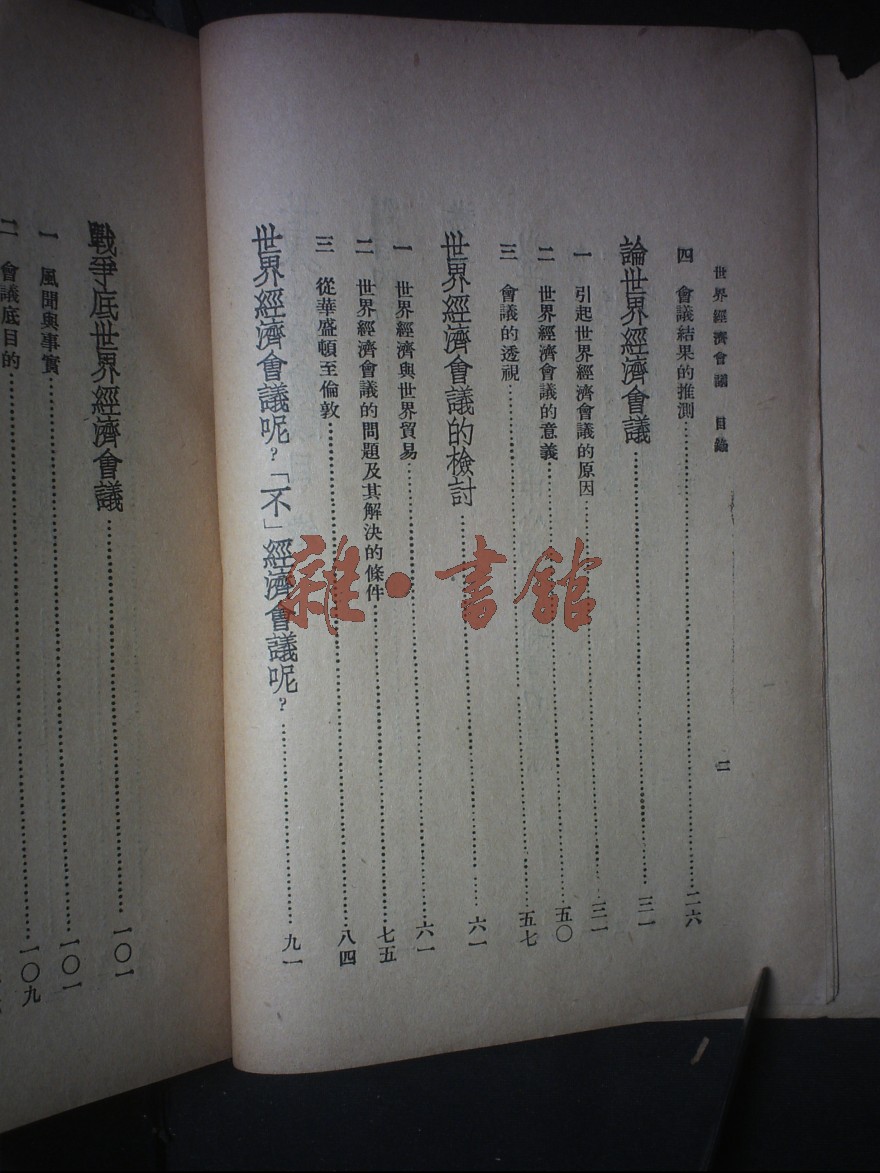 世界經濟會議 目錄 二
四 會議結果的推測……二六
論世界經濟會議……三一
一 引起世界經濟會議的原因……三一
二 世界經濟會議的意義……五〇
三 會議的透視……五七
世界經濟會議的檢討……六一
一 世界經濟與世界貿易……六一
二 世界經濟會議的問題及其解決的條件……七五
三 從華盛頓至倫敦……八四
世界經濟會議呢？「不」經濟會議呢？……九一
戰爭底世界經濟會議……一〇一
一 風聞與事實……一〇一
二 會議底目的……一〇九
雜·書館